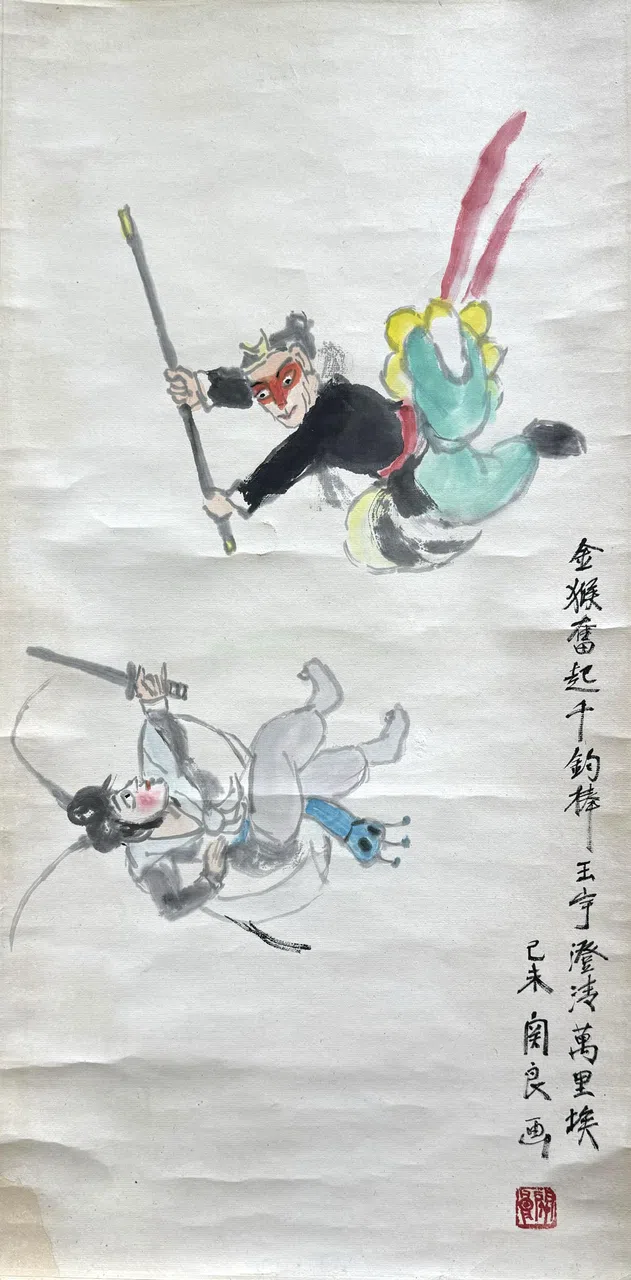 金猴奮起千鈞棒玉宇澄清萬里埃
己未 関良画
關良